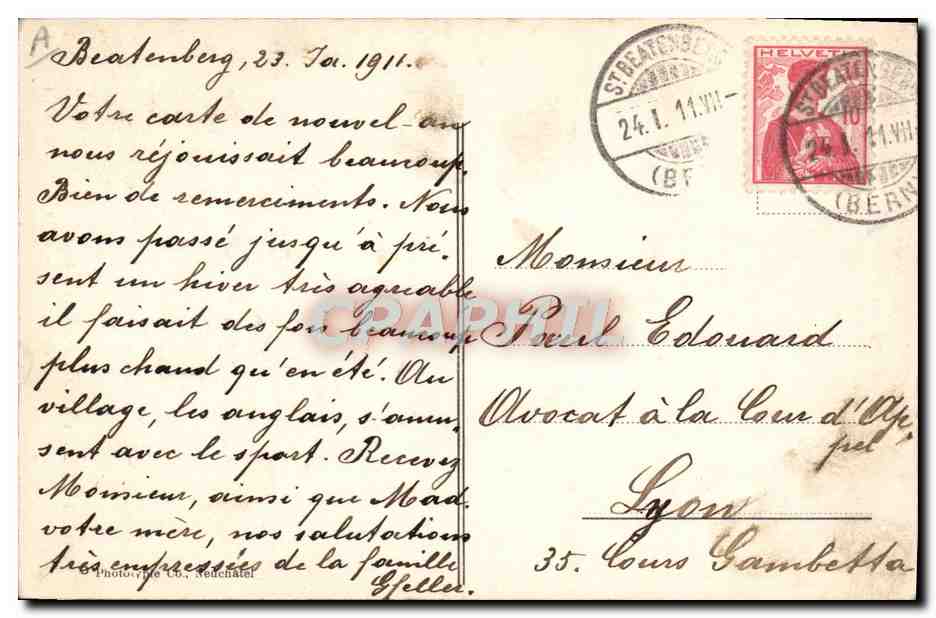 A
Beatenberg, 23. Ja. 1911.
Votre carte de nouvel-an
nous réjouissait beaucoup.
Bien de remerciments. Nous
avons passé jusqu'à pré-
sent un hiver très agreable
il faisait des fois beaucoup
plus chaud qu'en été. Au
village, les anglais, s'amu-
sent avec le sport. Recevez
Monsieur, ainsi que Mad.
votre mère, nos salutations
très empressées de la famille
Gfeller.
Phototypie Co., Neuchâtel
ST. BEATENBERG
24.I.11.VII-
(BE
HELVETIA
10
ST. BEATENBERG
24.I.11.VII-
(BERN)
Monsieur
Paul Edouard
Avocat à la Cour d'Ap-
pel
Lyon
35. Cours Gambetta
CPAPHIL